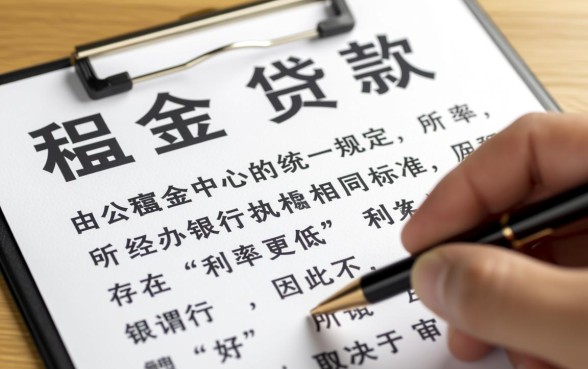 租金贷款
由公金中心的统一规定，所率，
所经办银行执相同标准，因
存在“利率更低” 利
银谓行 ，因此不，
“好” 所
取决于审